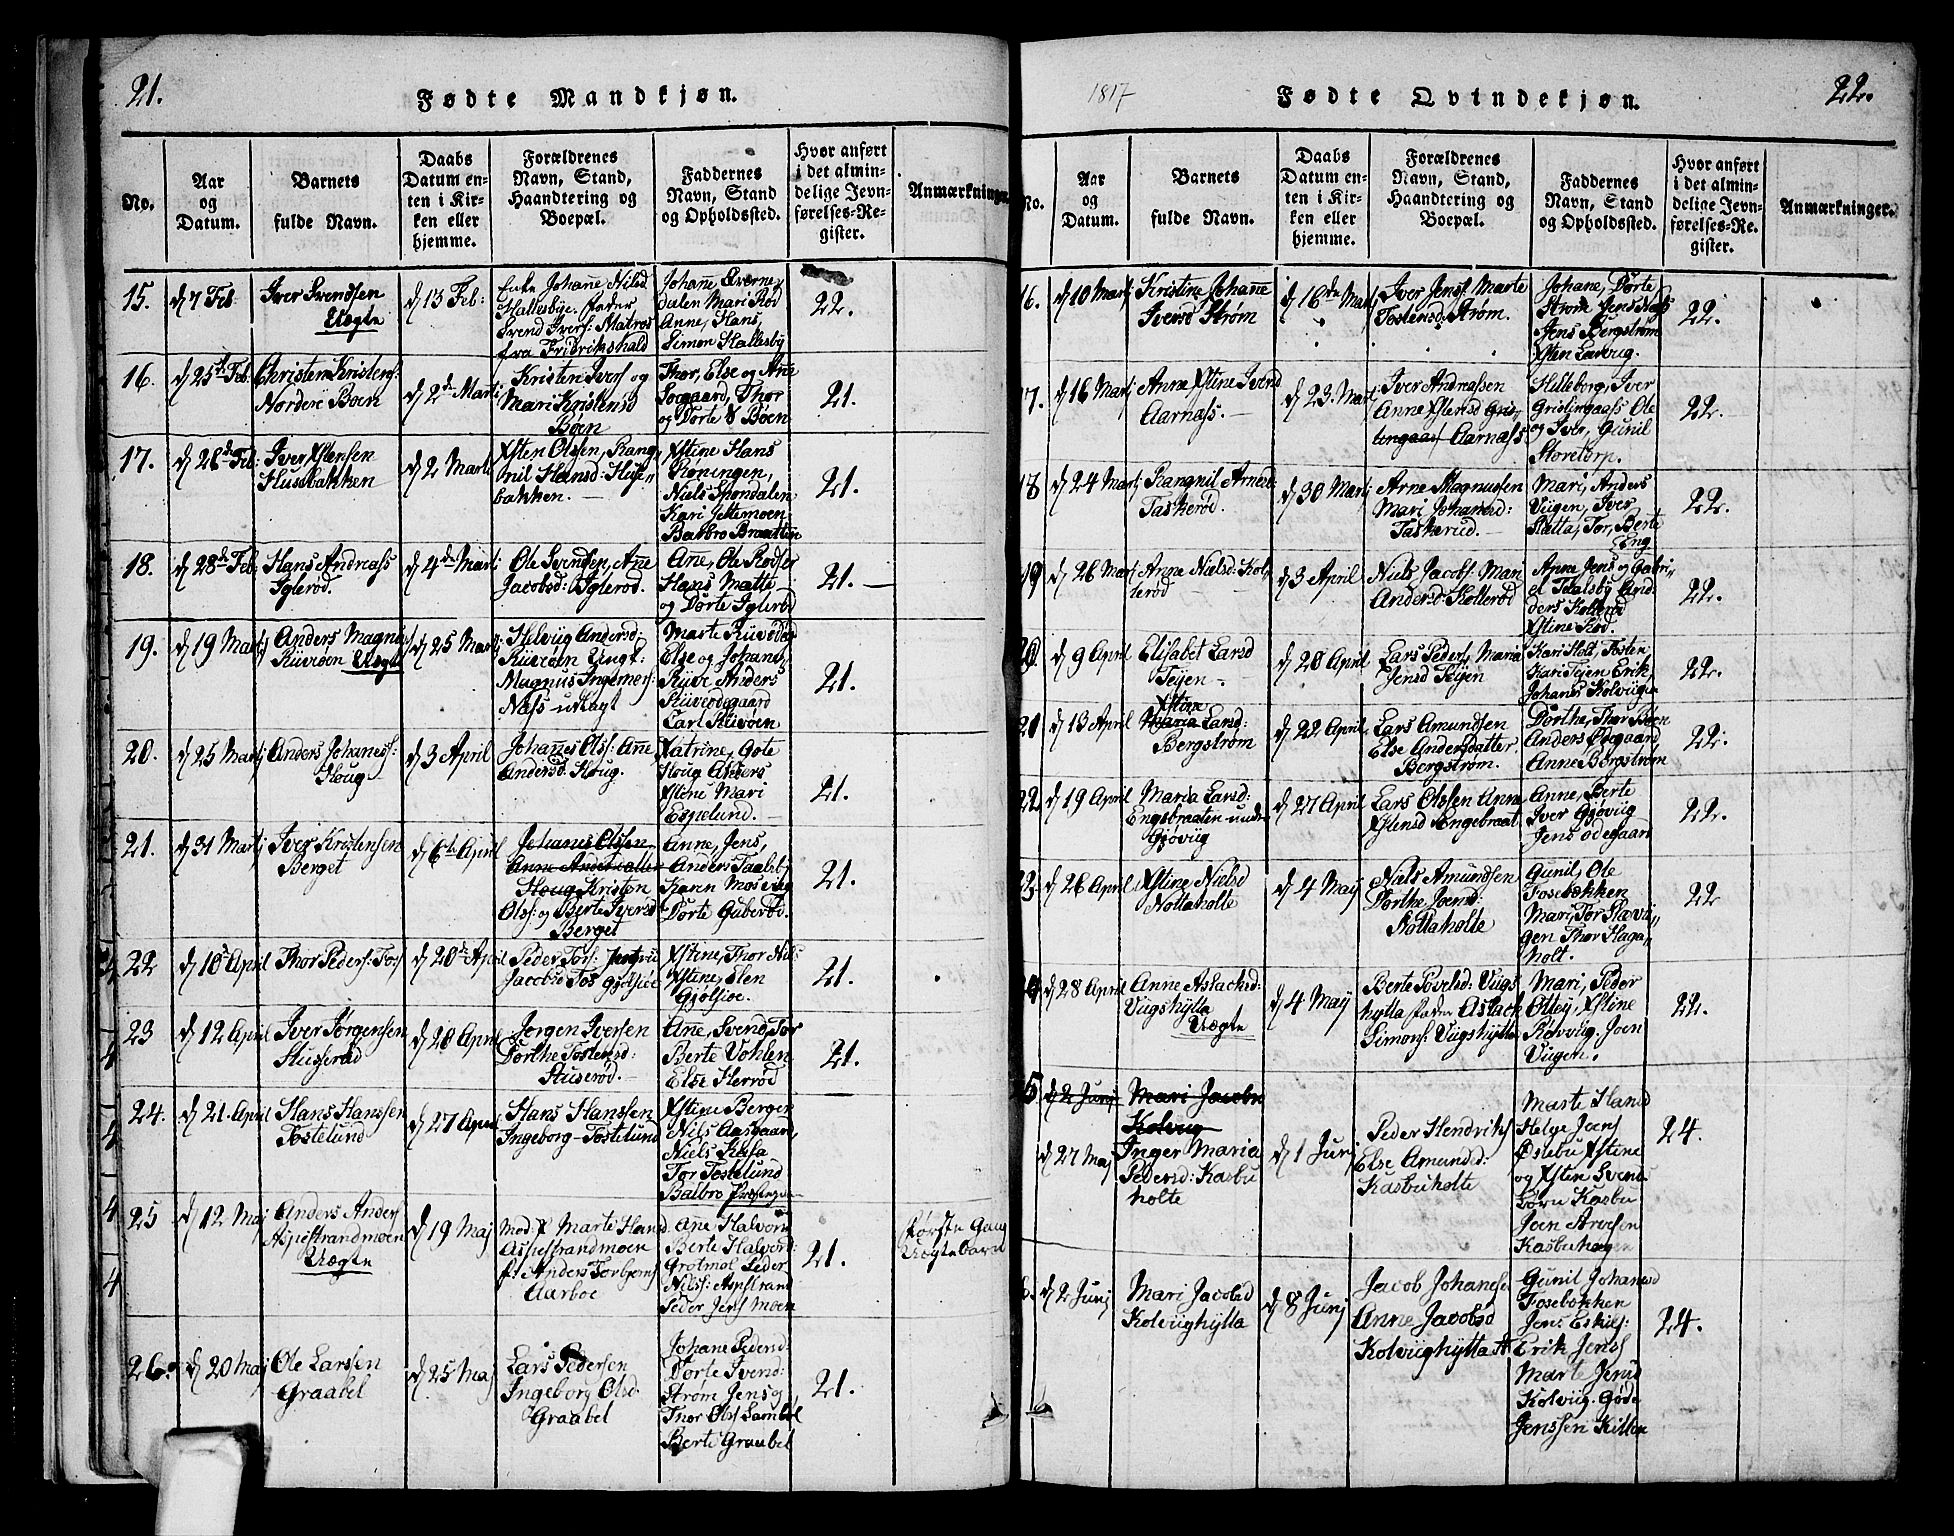 21.
Fødte Mandkjøn.
No.
Aar
og
Datum.
Barnets
fulde Navn.
Daabs
Datum en-
ten i Kir-
ken eller
hjemme.
Forældrenes
Navn, Stand,
Haandtering og
Boepæl.
Faddernes
Navn, Stand
og Opholdssted.
Hvor anført
i det almin-
delige Jevn-
førelses-Re-
gister.
Anmærkninger.
15.
d 7 Feb:
Iver Svendsen
Uægte
d 13 Feb:
Johane Nilsd
Hallesbye fader
Svend Ivers: Matros
fra Fridrikshald
Johane Qverne,
dalen Mari Rød
Anne, Hans,
Simon Hallesby
22.
16.
d 25de Feb:
Christen Kristens:
Nordere Boen
d 2de Marti
Kristen Ivers og
Mari Kristensd
Boen
Thor, Else og Ane
Torgaard, Thor
og Dorte Bøen
21.
17.
d 28de Feb:
Iver Xstensen
Husebakken
d 2 Marti
Xsten Olsen, Rang
nil Hansd: Huse,,
bakken.
Xstine Hans
Røningen,
Niels Spondalen
Kari Jettemoen
Barbro Braatten
21.
18.
d 28de Feb:
Hans Andreass
Iglerød.
d 4de Marti
Ole Svendsen, Ane
Jacobsd: Iglerød.
Ane, Ole Rødser
Hans Matte
og Dorte Iglerød
21.
19.
d 19 Martj
Anders Magnes
Riivrøen Uægte
d 25 Martj
Helvig Andersd:
Riivrøen Ungk:
Magnus Ingemers:
Næss udlagt
Marte Riivødeg
Else og Johane,
Riivi Anders
Riivrødegaard
Carl Riivøen
21.
20.
d 25 Martj
Anders Johaness:
Houg
d 3 April
Johanes Olss: Ane
Andersd: Houg.
Katrine, Gote
Houg Anders
Xstine Mari
Espelund.
21.
21.
d 31 Martj
Iver Kristensen
Berget
d 6te April
Johanes Olssen
Anne Andersdatter
Houg Kristen
Olss: og Berte Iversd
Berget
Anne, Jens,
Anders Taalsby
Karen Mosevig
Dorte Gaberød.
21.
22
d 10 April
Thor Peders: Tos
d 20de April
Peder Tors:
Jacobsd Tos Gjølsioe
Xstine, Thor Nil:
Xstine, Elen
Gjølsioe.
21.
23
d 12 April
Iver Jørgensen
Stuserød
d 20 April
Jorgen Iversen
Dorthe Tostensd:
Stuserød.
Ane, Svend, Tor
Berte Vohlen
Else Herrød
21.
24.
d 21. April
Hans Hanssen
Tostelund
d 27 April
Hans Hanssen
Ingeborg Tostelund
Xstine Bergen
Nils Aasgaan,
Niels Kasa
Tor Tostelund
Balbro
21.
25
d 12 Maj
Anders Anders
Aspestrandmoen
Uægte
d 19 Maj
Mod: P Marte Hansd
Aspestrandmoen
f: Anders Torbjorns
Aarboe
Ane Halvorn
Berte Halvord:
Grotmol Peder
Nilss: Aspstrand
Peder Jens Moen
21.
første Gang
Uægte barn
26.
d 20 Maj
Ole Larsen
Graabel
d 25 Maj
Lars Pedersen
Ingeborg Olsd
Graabel
Johane Pedersd:
Dorte Ivend:
Strøm Jens og
Thor Olss Lambøl
Berte Graabel
21.
1817
Fødte Qvindekjøn.
22.
No.
Aar
og
Datum.
Barnets
fulde Navn.
Daabs
Datum en-
ten i Kir-
ken eller
hjemme.
Forældrenes
Navn, Stand,
Haandtering og
Boepæl.
Faddernes
Navn, Stand
og Opholdssted.
Hvor anført
i det almin-
delige Jevn-
førelses-Re-
gister.
Anmærkninger.
16.
d 10 Martj
Kristine Johane
Iversd Strøm
d 16de Mart
Iver Jens Marte
Tostensd: Strøm.
Johane, Dorte,
Strøm Jens
Jens Bergstrøm
Xsten Lervug.
22.
17.
d 16 Martj
Anne Xstine Ivend
Aarnass.
d 23. Mart
Iver Andreassen
Anne Xstensd Gris,
lingaas Aarnass
Hilleborg, Iver
Grislingaass Ole
og Iver, Gunil
Storetorp.
22.
18
d 24 Martj
Rangnil Arnesd:
Taskerød.
d 30 Martj
Arne Magnussen
Mari Johanesd:
Taskerud.
Mari, Anders
Viigen, Iver
Slatta, Tor, Berte
Eng
22.
19
d 26 Martj
Anne Nielsd: Kol,
lerød
d 3 April
Niels Jacobs: Mari
Andersd: Kollerød
Anne Jens og Gabri,
el Taalsby And,
ders Kollerød
Xstine Rød.
22.
20
d 9 April
Elisabet Larsd
Teijen.
d 20 April
Lars Peders, Maria
Jensd Teijen
Kari Holt, Tosten
Kari Teijen Erik,
Johanes Kolviigen
22.
21
d 13 April
Xstine
Maria Larsd:
Bergstrøm
d 22 April
Lars Amundsen
Else Andersdatter
Bergstrøm.
Dorthe, Thor Boen
Anders Ødegaard
Anne Bergstrøm
22.
22
d 19 April
Maria Larsd:
Engebraaten under
Gjøviig
d 27 April
Lars Olssen Anne
Xstensd Engebraat
Anne, Berte
Iver Gjøviig
Jens odegaan
22.
23.
d 26 April
Xstine Nielsd
Nottaholte
d 4 Maij
Niels Amundsen
Dorthe Joensd:
Nottaholte
Gunil, Ole
Fosebækken
Mari, Tor Slævi,,
gen Thor Haga,,
holt.
22
24
d 28 April
Anne Aslacksd:
Viigshytta
Uægte
d 4 Maij
Berte Povelsd: Viigs
hytta fader Aslack
Simons: Viigshytta
Mari, Peder
Otteij, Xstine
Rølviig, Joen
Viigen.
22.
25
d 2 Junj
Mari Jacobs
Kolvug
d 27 Maj
Inger Maria
Pedersd: Kasbu
holte
d 1 Junj
Peder Hendriks
Else Amundsd:
Kasbuholte
Marte Hansd
Helge Joens
Østebu Xstine
og Xsten Svends
Børn Kasbu
Joen Arvesen
Kasbuhagen
24.
d 2 Junj
Mari Jacobsd
Kolviighytta
d 8 Junj
Jacob Johanese
Anne Jacobsd
Kolviighytta
Gunil Johanesd
Fosebøkken
Jens Eskils:
Erik Jenss
Marte Jensd
Kolviig. Gøde
Jenssen Killen
24.